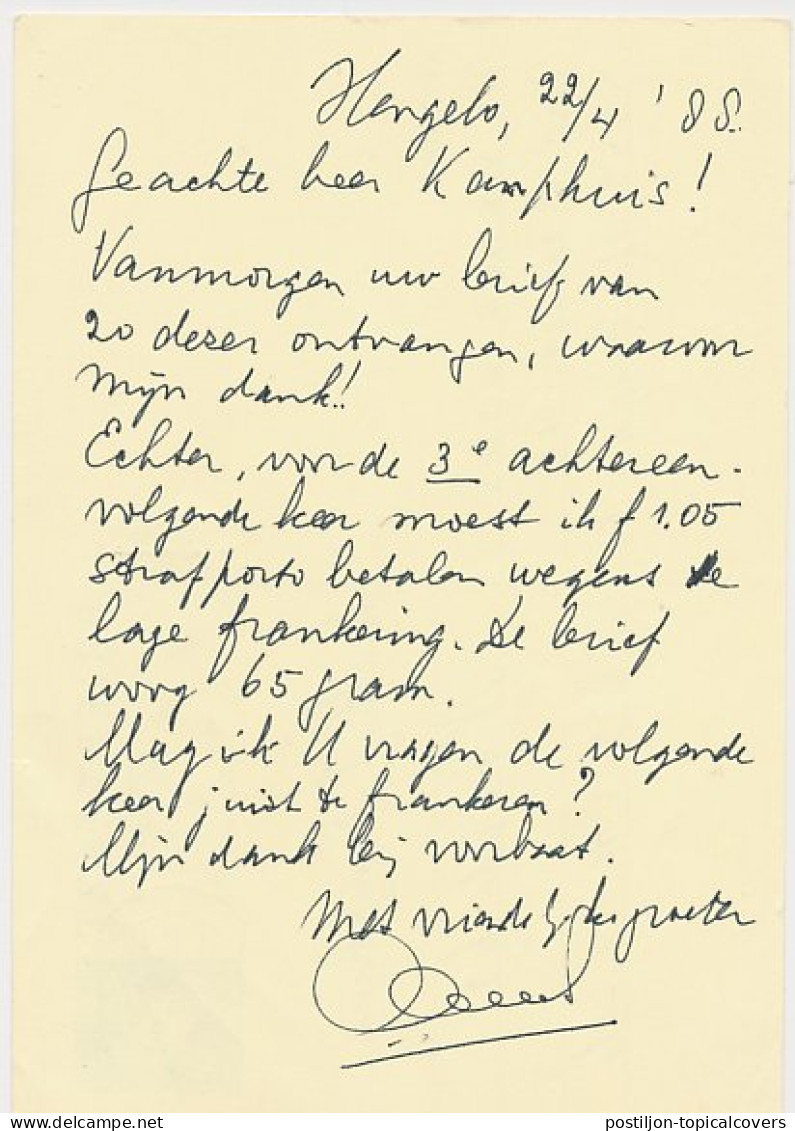 Hengelo, 22/4 '88.
Geachte heer Kamphuis!
Vanmorgen uw brief van
20 dezer ontvangen, waarvoor
mijn dank!!
Echter, voor de 3e achtereen-
volgende keer moest ik f 1.05
strafporto betalen wegens te
lage frankering. De brief
woog 65 gram.
Mag ik U vragen de volgende
keer juist te frankeren?
Mijn dank bij voorbaat.
Met vriendelijke groeten
delcampe.net
postiljon-topicalcovers